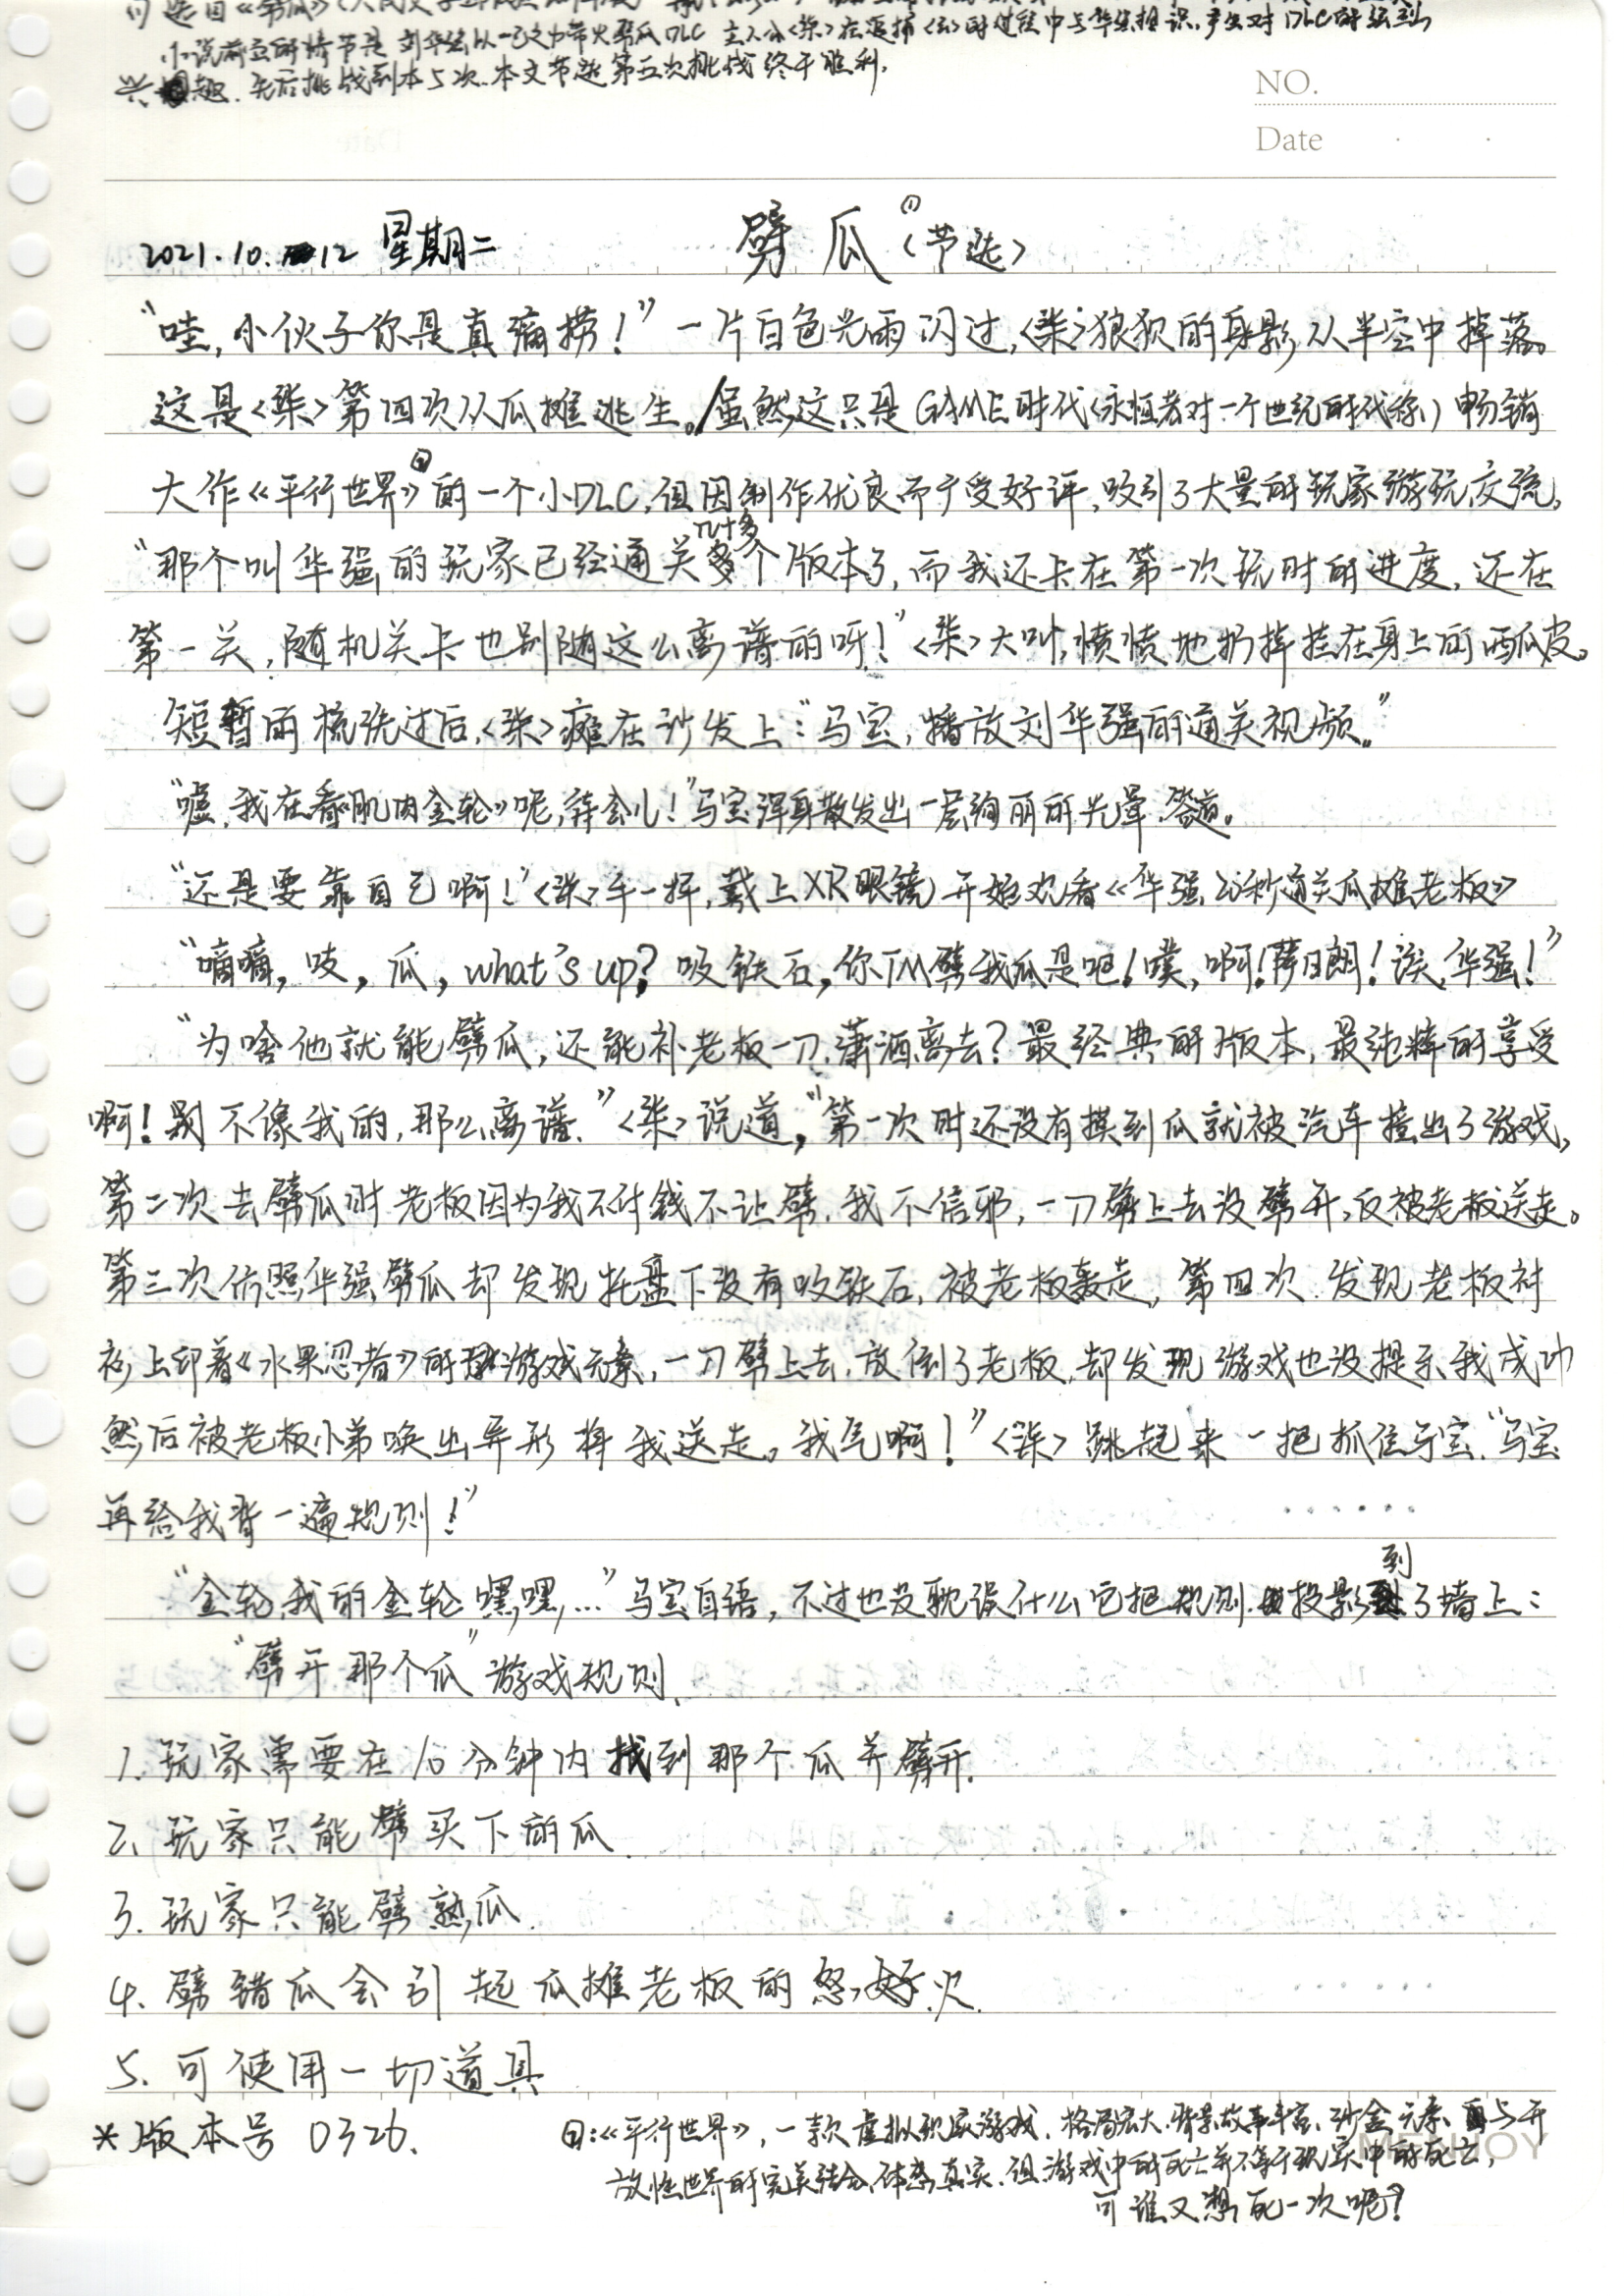 小说前面的情节是 刘华强以一己之力带火劈瓜DLC 主人公〈柒〉在追捕〈〉时过程中与华强相识，产生对DLC的强烈
兴趣，先后挑战到本5次，本文节选第五次挑战终于胜利。
NO.
Date
2021.10.12 星期二 劈瓜(1)（节选）
“哇，小伙子你是真痛捞！”一片白色光雨闪过，〈柒〉狼狈的身影从半空中掉落。
这是〈柒〉第四次从瓜摊逃生。/虽然这只是GAME时代（永恒者对一个世纪的代称）畅销
大作《平行世界》②的一个小DLC，但因制作优良而广受好评，吸引了大量的玩家游玩交流。
“那个叫华强的玩家已经通关几十多个版本了，而我还卡在第一次玩时的进度，还在
第一关，随机关卡也别随这么离谱的呀！”〈柒〉大叫，愤愤地扔掉挂在身上的西瓜皮。
短暂的梳洗过后，〈柒〉瘫在沙发上：“马宝，播放刘华强的通关视频。”
“嘘，我在看《肌肉金轮》呢，等会儿！”马宝浑身散发出一层绚丽的光晕，答道。
“还是要靠自己啊！”〈柒〉手一挥，戴上XR眼镜，开始观看《华强，25秒通关瓜摊老板》
“嘀嘀，吱，瓜，what's up？吸铁石，你TM劈我瓜是吧！噗，啊！萨日朗！诶，华强！”
“为啥他就能劈瓜，还能补老板一刀，潇洒离去？最经典的版本，最纯粹的享受
啊！则不像我的，那么离谱。”〈柒〉说道，“第一次时还没有摸到瓜就被汽车撞出了游戏，
第二次去劈瓜时老板因为我不付钱不让劈，我不信邪，一刀劈上去没劈开，反被老板送走。
第三次仿照华强劈瓜却发现托盘下没有吸铁石，被老板轰走，第四次，发现老板衬
衫上印着《水果忍者》的游戏元素，一刀劈上去，放倒了老板，却发现游戏也没提示我成功
然后被老板小弟唤出异形将我送走。我气啊！”〈柒〉跳起来一把抓住马宝，“马宝
再给我背一遍规则！”
“金轮，我的金轮，嘿嘿，…”马宝自语，不过也没耽误什么，它把规则投影到了墙上：
“劈开那个瓜”游戏规则
1. 玩家需要在10分钟内找到那个瓜并劈开.
2. 玩家只能劈买下的瓜
3. 玩家只能劈熟瓜.
4. 劈错瓜会引起瓜摊老板的怒火
5. 可使用一切道具
*版本号 0326.
②：《平行世界》，一款虚拟现实游戏，格局宏大，背景故事丰富，沙盒元素与开
放性世界的完美结合，体感真实，但游戏中的死亡并不等于现实中的死亡，
可谁又想死一次呢？